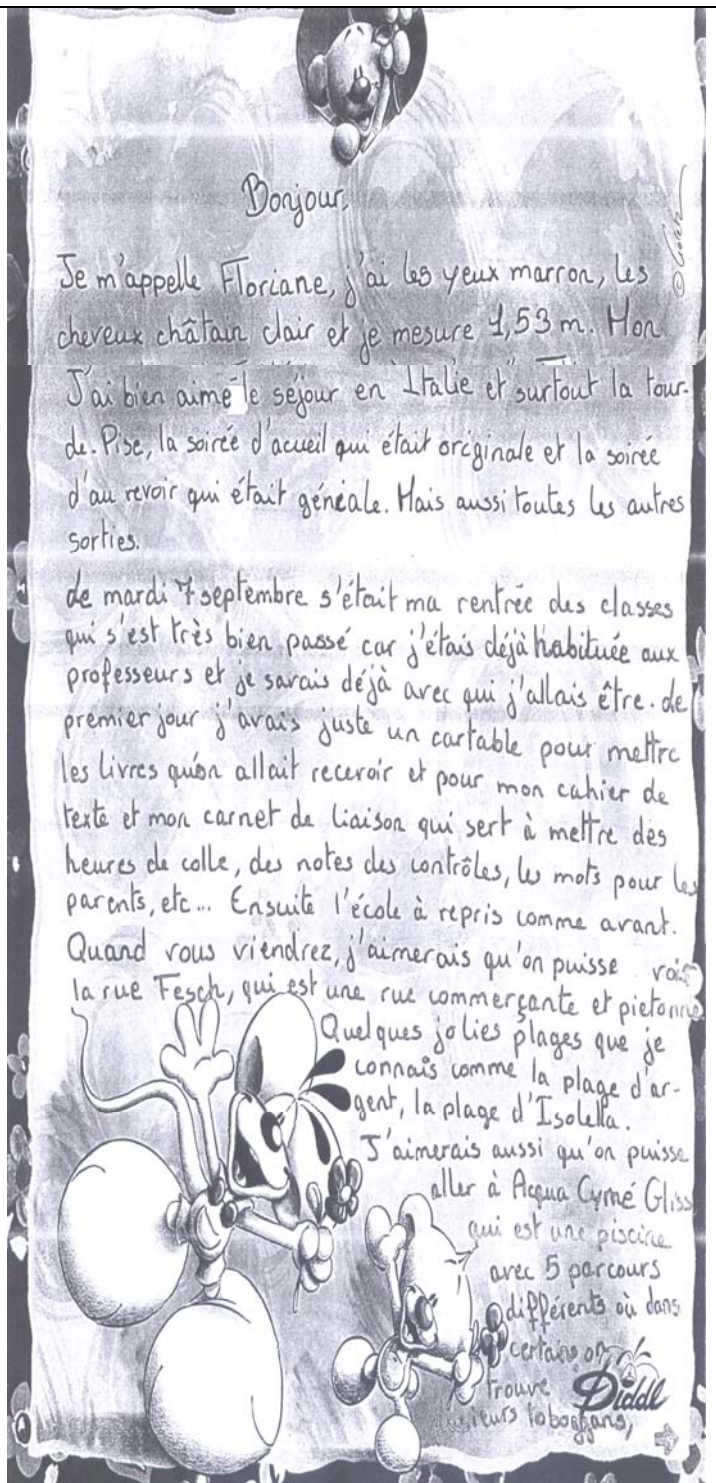 © Goletz
Bonjour,
Je m'appelle Floriane, j'ai les yeux marron, les
cheveux châtain clair et je mesure 1,53 m. Mon
J'ai bien aimé le séjour en Italie et surtout la tour
de Pise, la soirée d'accueil qui était originale et la soirée
d'au revoir qui était géniale. Mais aussi toutes les autres
sorties.
Le mardi 7 septembre s'était ma rentrée des classes
qui s'est très bien passé car j'étais déjà habituée aux
professeurs et je savais déjà avec qui j'allais être. Le
premier jour j'avais juste un cartable pour mettre
les livres qu'on allait recevoir et pour mon cahier de
texte et mon carnet de liaison qui sert à mettre des
heures de colle, des notes des contrôles, les mots pour les
parents, etc... Ensuite l'école à repris comme avant.
Quand vous viendrez, j'aimerais qu'on puisse voir
la rue Fesch, qui est une rue commerçante et pietonne
Quelques jolies plages que je
connais comme la plage d'ar-
gent, la plage d'Isolella.
J'aimerais aussi qu'on puisse
aller à Acqua Cyrné Gliss
qui est une piscine
avec 5 parcours
différents où dans
certains on
trouve
plusieurs toboggans,
Diddl